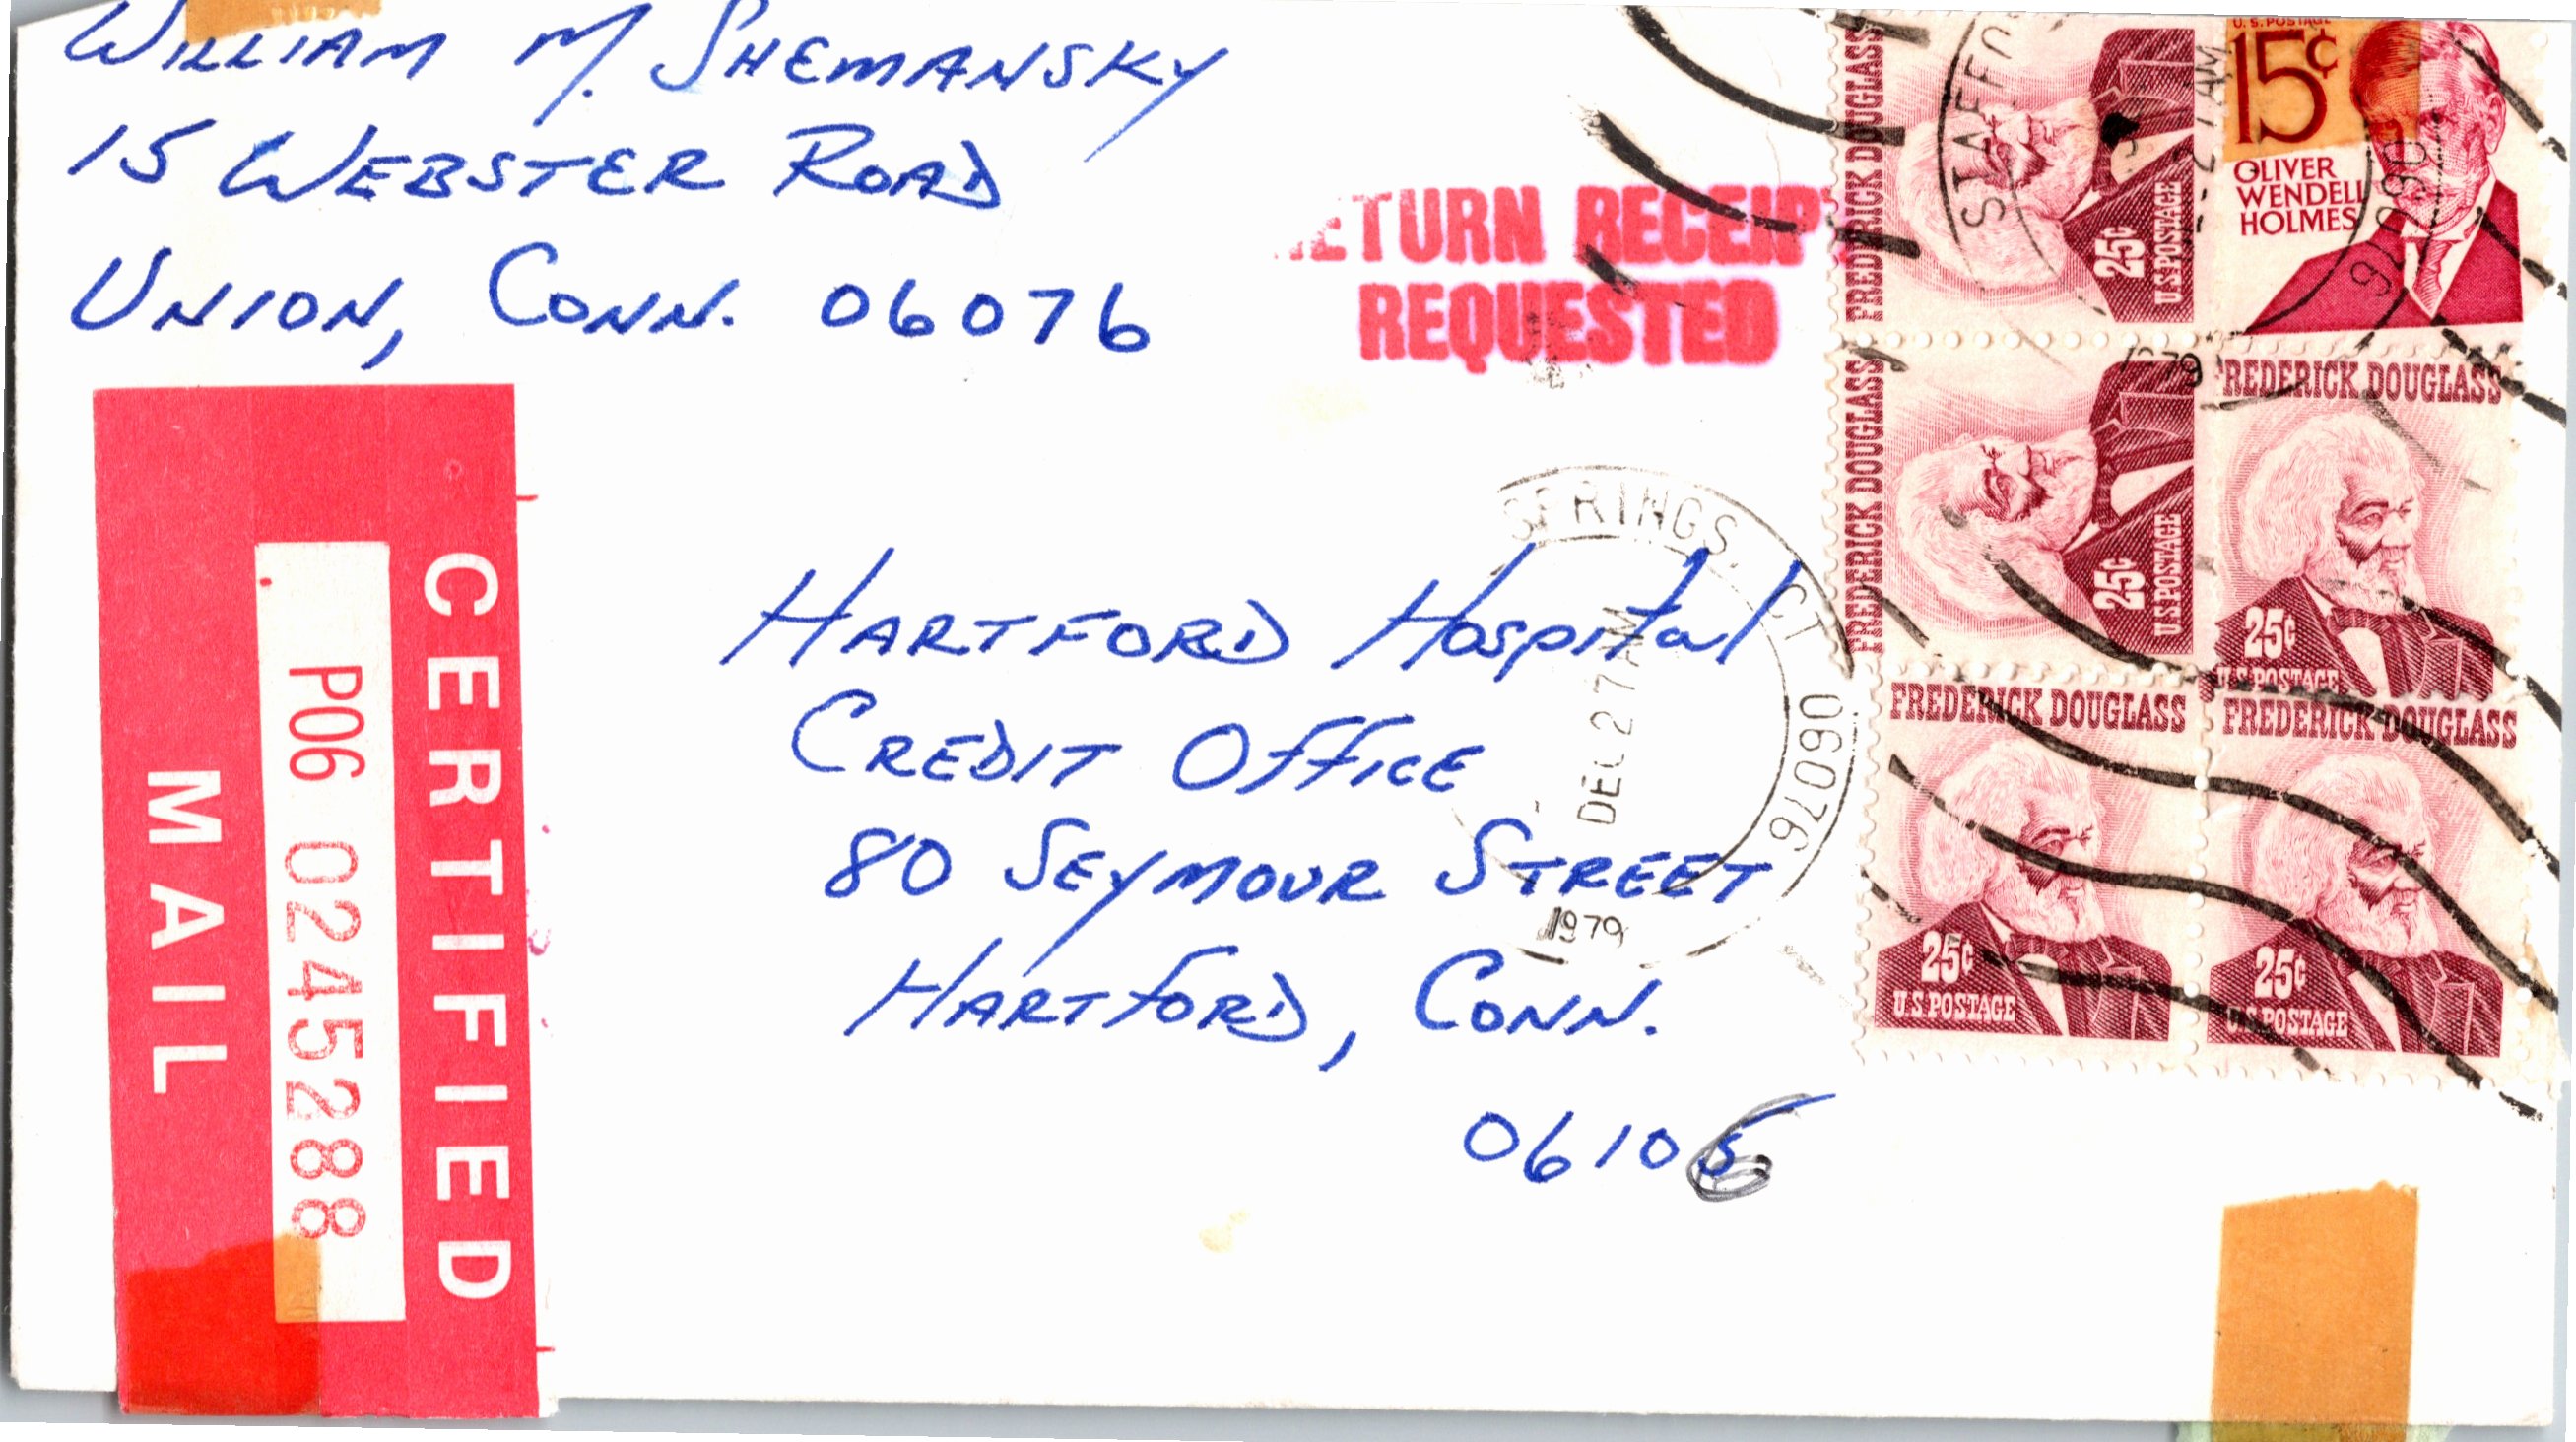 WILLIAM M. SHEMANSKY
15 WEBSTER ROAD
UNION, CONN. 06076
RETURN RECEIPT
REQUESTED
CERTIFIED
MAIL
P06 0245288
HARTFORD Hospital
CREDIT OFFICE
80 SEYMOUR STREET
HARTFORD, CONN.
06106
SPRINGS, CT 06076
DEC 27 AM
1979
STAFFO
06076
27 AM
FREDERICK DOUGLASS
25¢
U.S. POSTAGE
U.S. POSTAGE
15¢
OLIVER
WENDELL
HOLMES
FREDERICK DOUGLASS
25¢
U.S. POSTAGE
FREDERICK DOUGLASS
25¢
U.S. POSTAGE
FREDERICK DOUGLASS
25¢
U.S. POSTAGE
FREDERICK DOUGLASS
25¢
U.S. POSTAGE